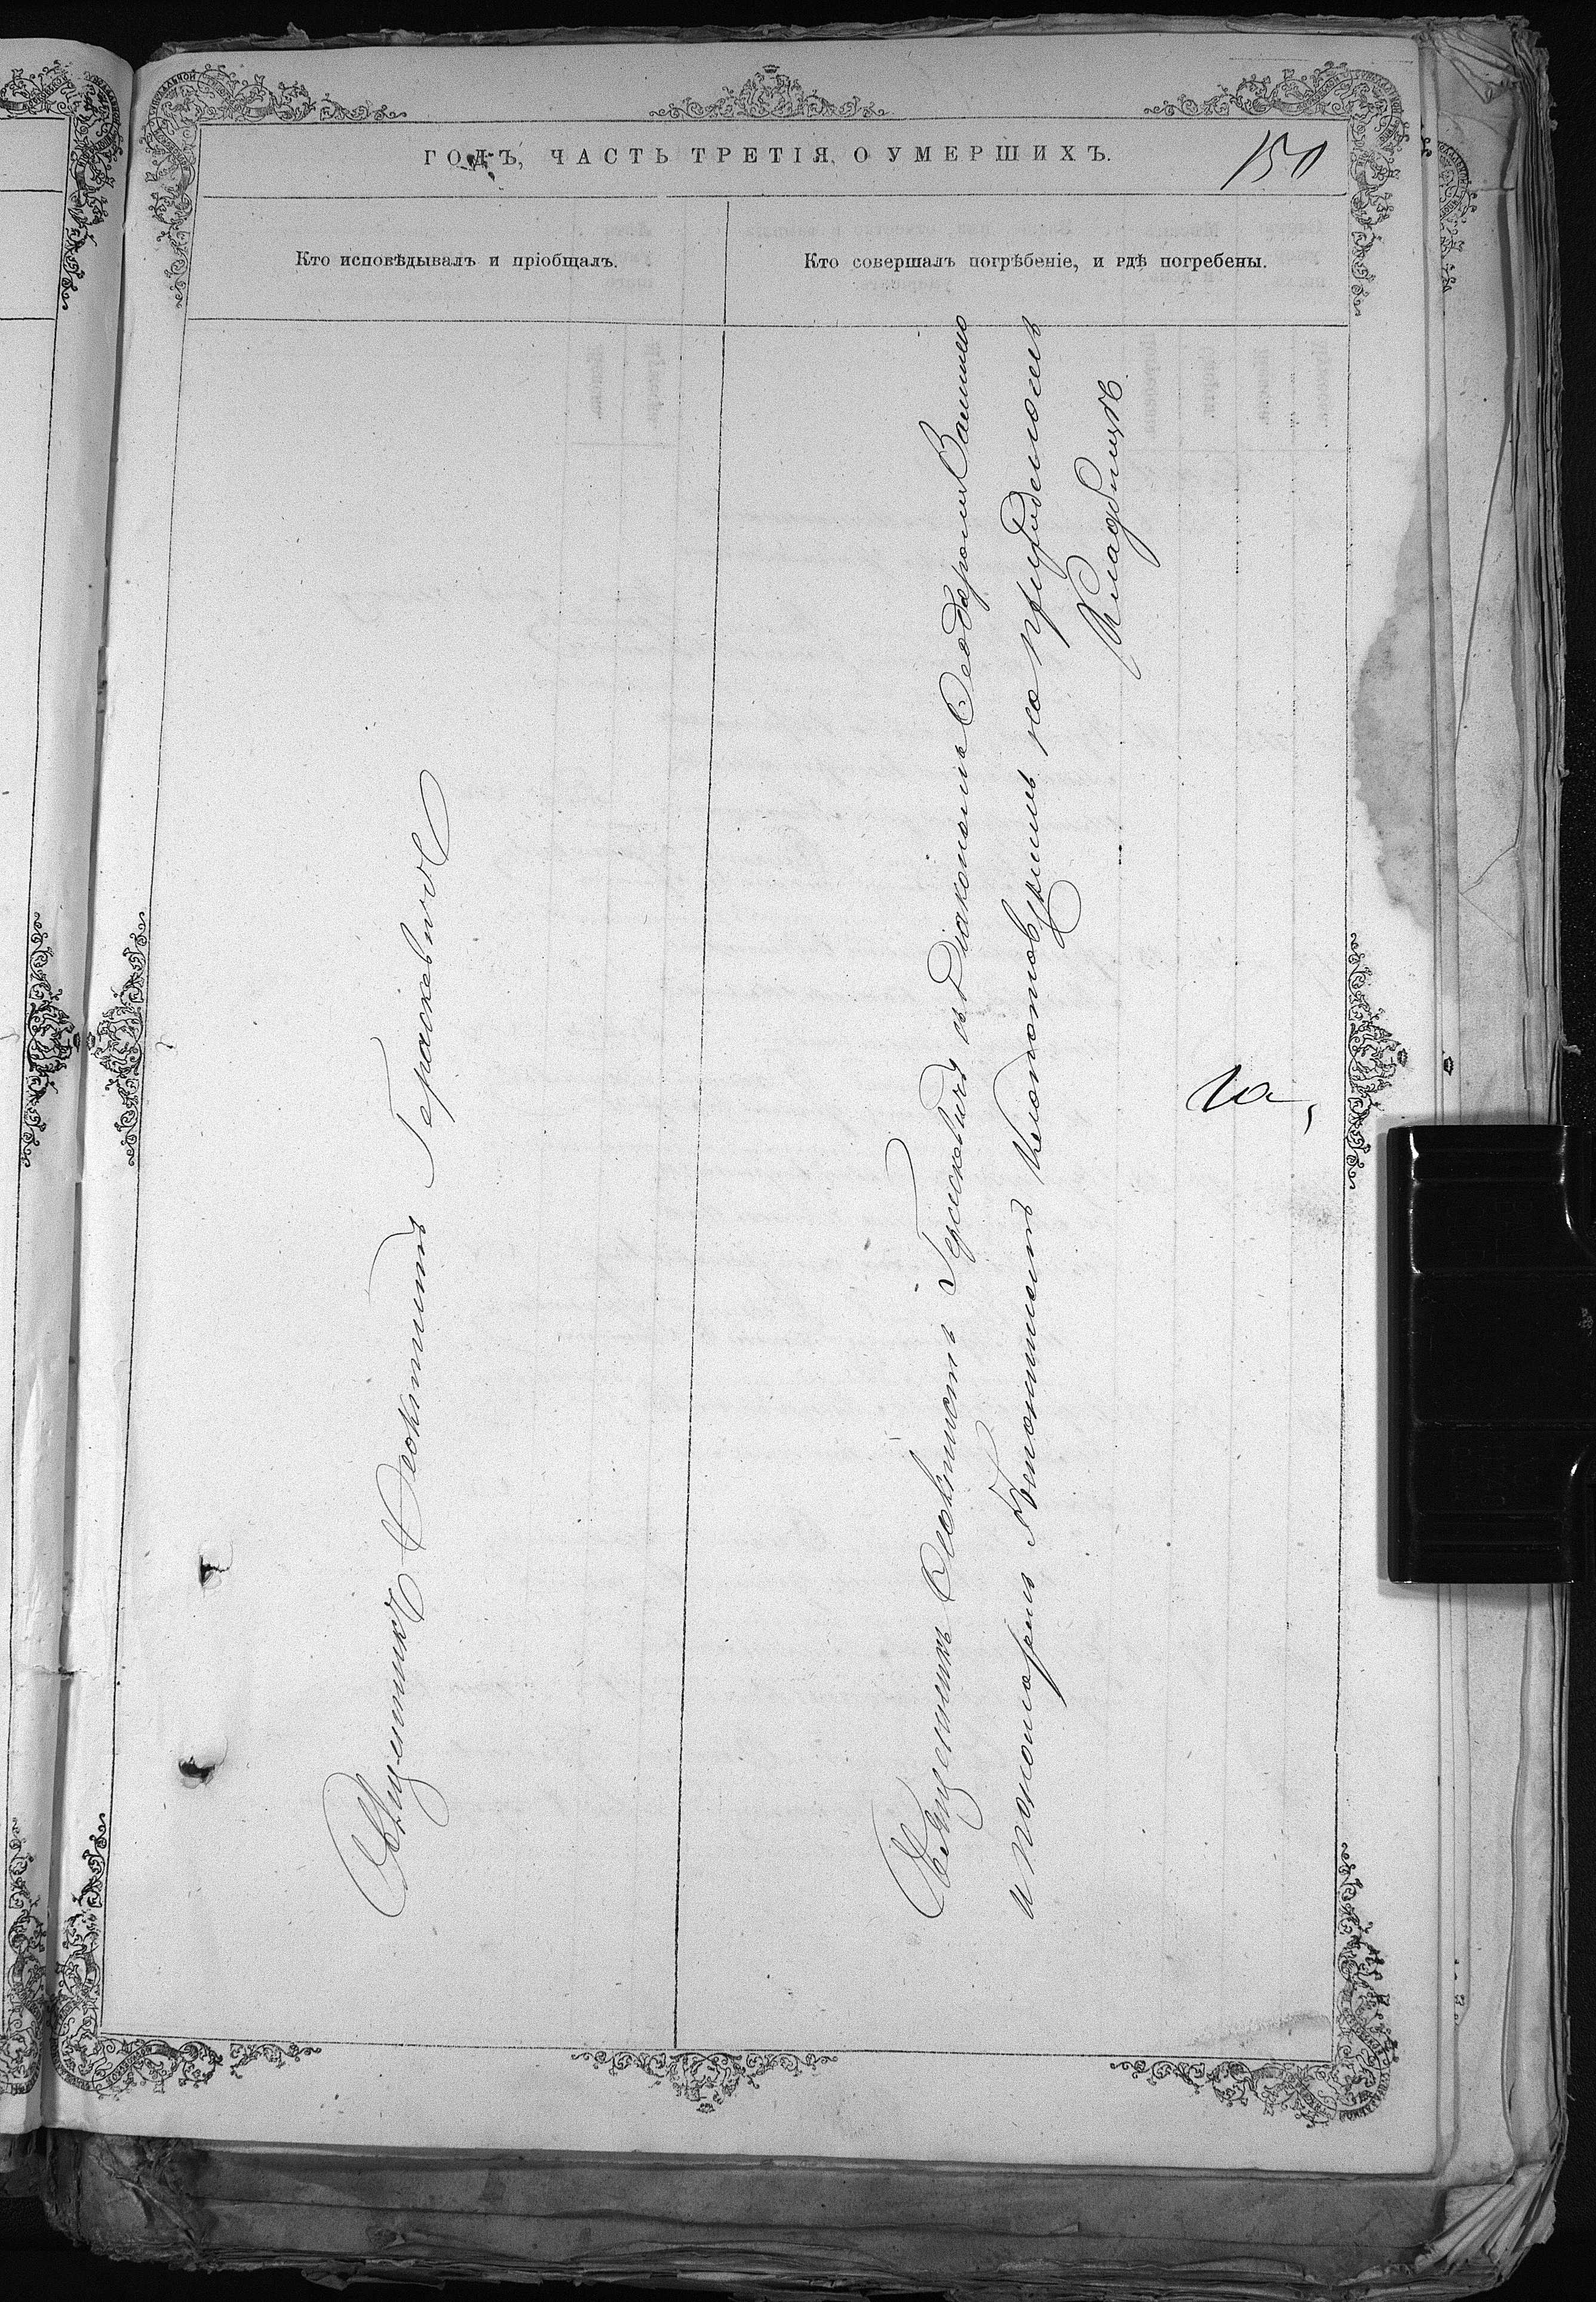 ГОДЪ, ЧАСТЬ ТРЕТІЯ, О УМЕРШИХЪ.
150
Кто исповѣдывалъ и пріобщалъ.
Кто совершалъ погрѣбеніе, и гдѣ погребены.
Священникъ Ѳеоктистъ Гераскевичъ
Священникъ Ѳеоктистъ Гераскевичъ съ Діакономъ Ѳеодоромъ
и пономаремъ на приходскомъ
Кладбищѣ.